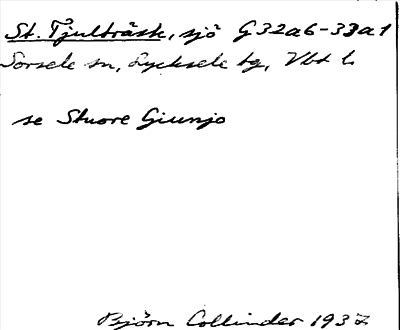 St. Tjulträsk, sjö G32a6-33a1
Sorsele sn, Lycksele tg, Vbt l.
se Stuore Giunjo
Björn Collinder 1937